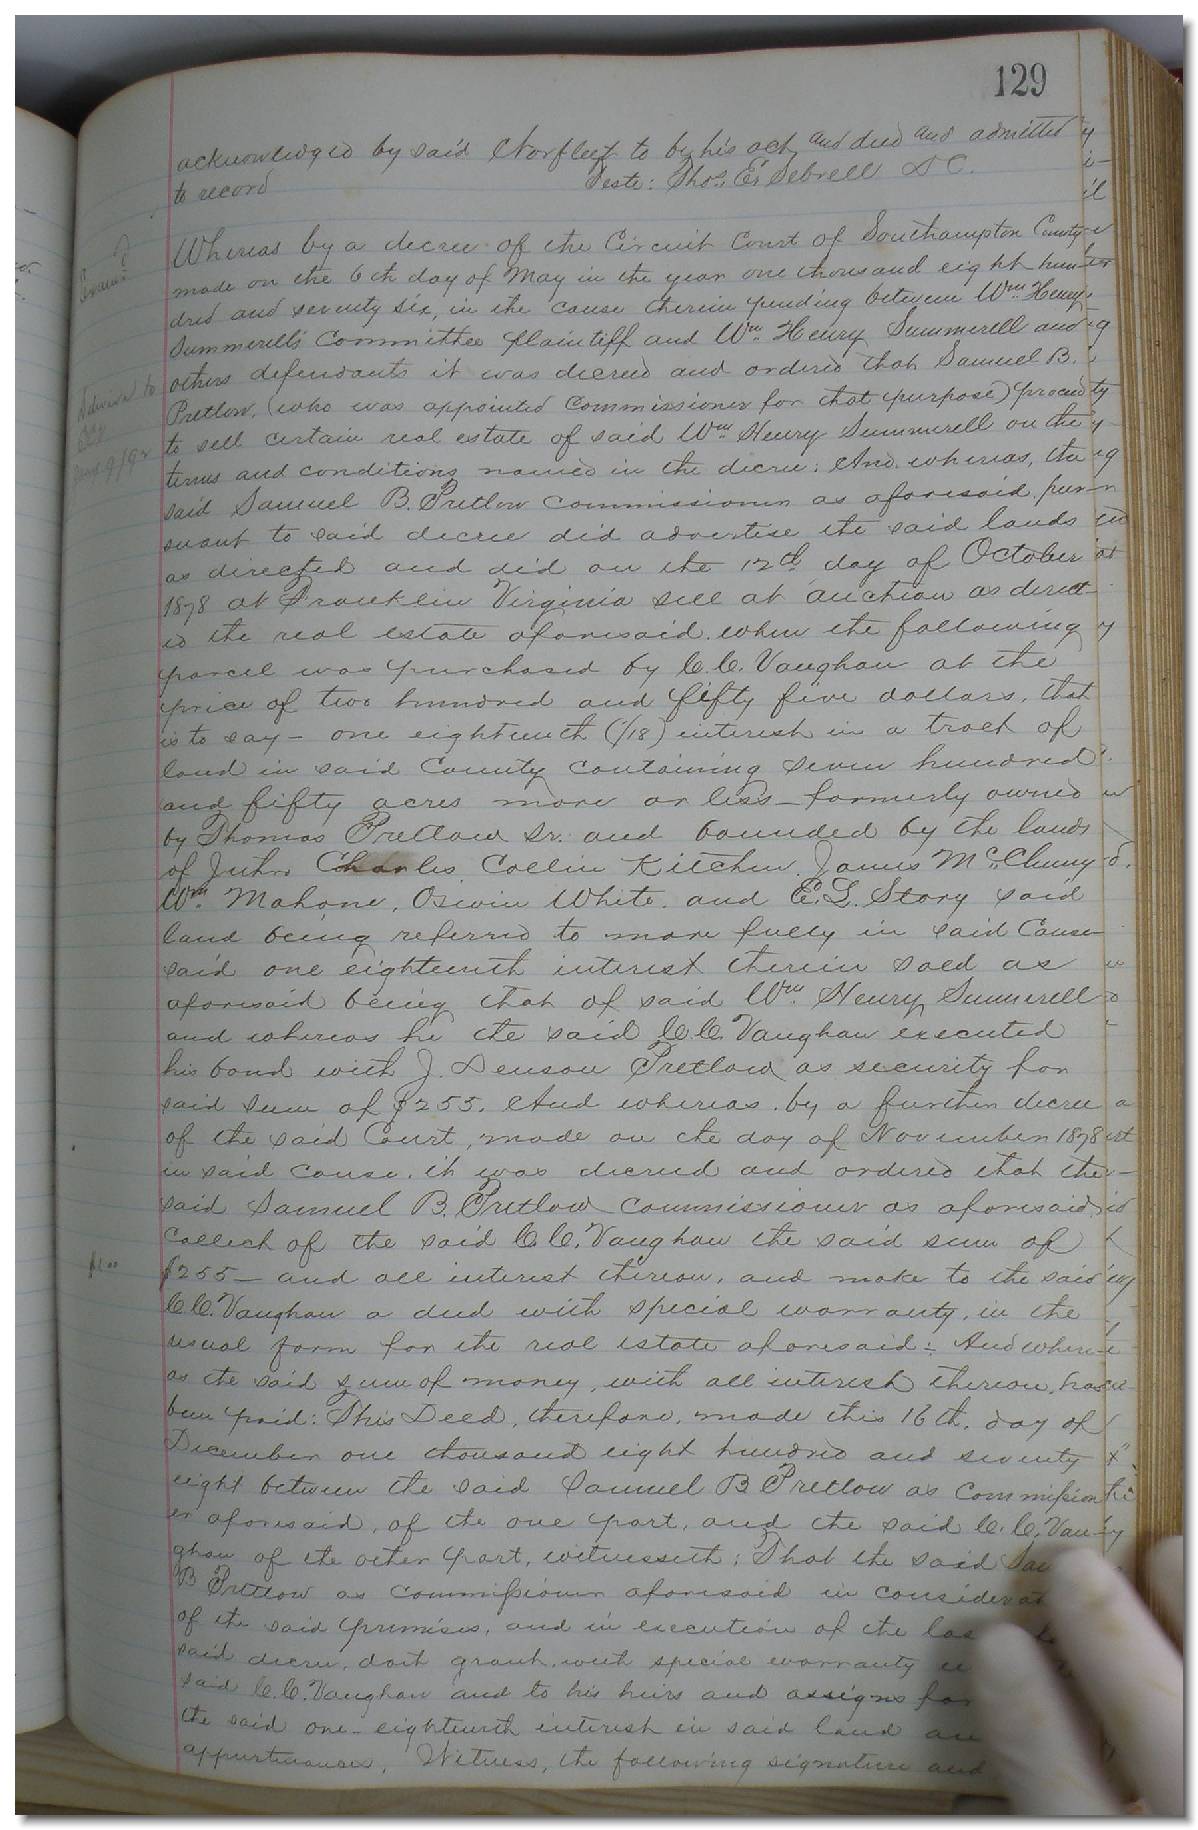 129
acknowledged by said Norfleet to be his act and deed and admitted
to record Teste: Thos. E. Sebrell D C.
Whereas by a decree of the Circuit Court of Southampton County
made on the 6th day of May in the year one thousand eight hun-
dred and seventy six, in the cause therein pending between Wm. Henry
Summerell's Committee plaintiff and Wm. Henry Summerell and
others defendants it was decreed and ordered that Samuel B.
Pretlow, (who was appointed Commissioner for that purpose) proceed
to sell certain real estate of said Wm. Henry Summerell on the
terms and conditions named in the decree: And whereas, the
said Samuel B. Pretlow Commissioner as aforesaid, pur-
suant to said decree did advertise the said lands
as directed and did on the 12th day of October
1878 at Franklin Virginia sell at auction as direct
ed the real estate aforesaid. when the following
parcel was purchased by C. C. Vaughan at the
price of two hundred and fifty five dollars, that
is to say - one eighteenth (1/18) interest in a tract of
land in said County containing seven hundred
and fifty acres more or less - formerly owned
by Thomas Pretlow Sr. and bounded by the lands
of John Charles Collin Kitchen James McClenny
Wm. Mahone, Oswin White. and E. G. Story said
land being referred to more fully in said Cause
said one eighteenth interest therein sold as
aforesaid being that of said Wm. Henry Summerell
and whereas he the said C. C. Vaughan executed
his bond with J. Denson Pretlow as security for
said sum of $255. And whereas. by a further decree
of the said Court, made on the day of November 1878
in said cause. it was decreed and ordered that the
said Samuel B. Pretlow Commissioner as aforesaid
Collect of the said C. C. Vaughan the said sum of
$255 - and all interest thereon, and make to the said
C. C. Vaughan a deed with special warranty, in the
usual form for the real estate aforesaid: And where-
as the said sum of money, with all interest thereon, has
been paid: This Deed, therefore, made this 16th. day of
December one thousand eight hundred and seventy
eight between the said Samuel B Pretlow as Commission
er aforesaid, of the one part, and the said C. C. Vau-
ghan of the other part, witnesseth: That the said
B Pretlow as Commissioner aforesaid in
of the said premises, and in execution of the
said decree, doth grant, with special warranty
said C. C. Vaughan and to his heirs and assigns for
the said one-eighteenth interest in said land
appurtenances, Witness, the following signature and